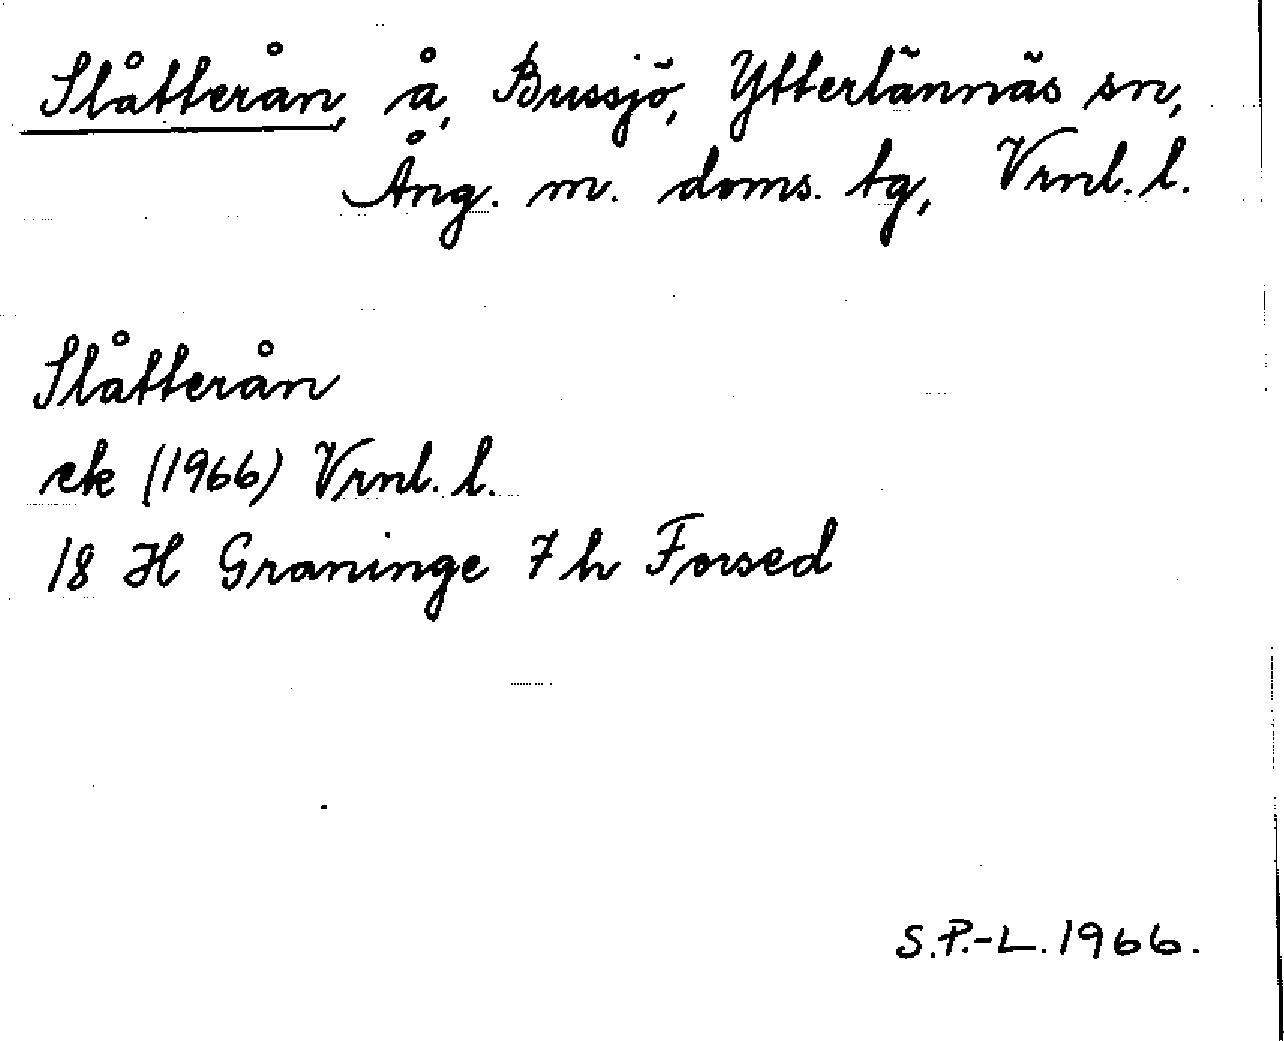 Slåtterån, å, Bussjö, Ytterlännäs sn,
Ång. m. doms. tg, Vrnl. l.
Slåtterån
ek (1966) Vrnl. l.
18 H Graninge 7 h Forsed
S.P.-L. 1966.